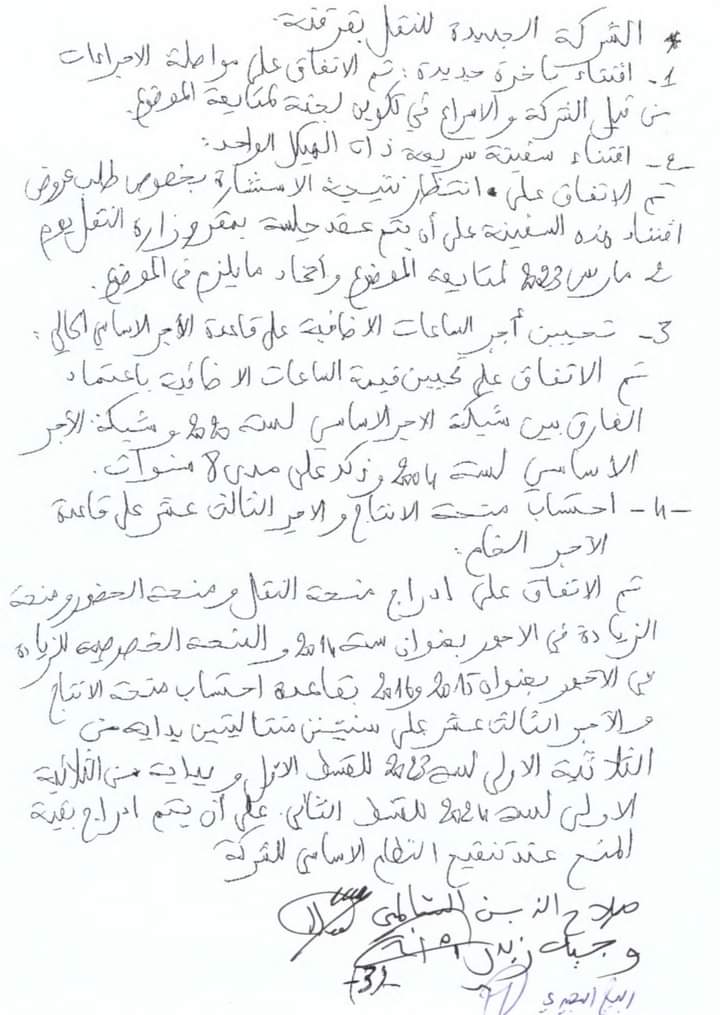 * الشركة الجديدة للنقل بقرقنة:
1- اقتناء باخرة جديدة: تم الاتفاق على مواصلة الاجراءات
من قبل الشركة والاسراع في تكوين لجنة لمتابعة الموضوع.
2- اقتناء سفينة سريعة ذات الهيكل الواحد:
تم الاتفاق على انتظار نتيجة الاستشارة بخصوص طلب عروض
اقتناء هذه السفينة على أن يتم عقد جلسة بمقر وزارة النقل يوم
2 مارس 2023 لمتابعة الموضوع واتخاذ ما يلزم في الموضوع.
3- تحيين أجر الساعات الاضافية على قاعدة الأجر الاساسي الحالي:
تم الاتفاق على تحيين قيمة الساعات الاضافية باعتماد
الفارق بين شبكة الاجر الاساسي لسنة 2020 وشبكة الأجر
الأساسي لسنة 2004 وذلك على مدى 8 سنوات.
-4- احتساب منحة الانتاج والاجر الثالث عشر على قاعدة
الأجر الخام:
تم الاتفاق على ادراج منحة النقل ومنحة الحضور ومنحة
الزيادة في الاجور بعنوان سنة 2014 والمنحة الخصوصية للزيادة
في الاجور بعنوان 2015 و2016 بقاعدة احتساب منحة الانتاج
والأجر الثالث عشر على سنتين متتاليتين بداية من
الثلاثية الاولى لسنة 2023 للقسط الاول وبداية من الثلاثية
الاولى لسنة 2024 للقسط الثاني. على أن يتم ادراج بقية
المنح عند تنقيح النظام الاساسي للشركة
صلاح الدين السالمي
وجيه الزيدي
-3-